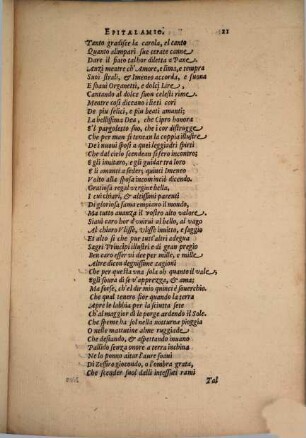 EPITALAMIO. 21
Tanto gradisce la carola, el canto
Quanto all'impari sue cerate canne
Dare il fiato talhor diletta a Pane,
Anzi mentre ch'Amore, e lima, e tempra
Suoi strali, & Imeneo accorda, e suona
E flauti Organetti, e dolci Lire,
Cantando al dolce suon celesti rime.
Mentre così diceano i lieti cori
De piu felici, e piu beati amanti;
La bellissima Dea, che Cipro honora
E'l pargoletto suo, che i cor distrugge
Che per man si tenean la coppia illustre
De i nuoui sposi a quei leggiadri spirti
Che dal cielo scendean si fero incontro;
Egli inuitaro, e gli guidar tra loro
E li amanti a seder; quinci Imeneo
Volto alla sposa incominciò dicendo.
Gratiosa regal vergine bella,
I cui chiari, & altissimi parenti
Di gloriosa fama empiaro il mondo,
Ma tutto auanza il vostro alto valore
Siaui caro hor d'unirui al bello, al vago
Al chiaro Vlisse, Vlisse inuitto, e saggio
Et alto si che pur tent'altri adegua
Sagri Principi illustri e di gran pregio
Ben caro esser vi dee per mille, e mille
Altre dicoo deguissime cagioni
Che per quella vna sola ob quanto il vale,
Egli soura di se v'apprezza, & ama;
Ma forse, ch'el dir mio quinci è souerchio.
Che qual tenero fior quando la terra
Apre le labbia per la scinta sete
Ch'al maggior dì lo porge ardendo il Sole.
Che speme ha sol nella notturna pioggia
O nelle mattutine alme ruggiade
Che destando, & aspettando inuano
Pallido senza onore a terra inchina
Ne lo ponno aitar l'aure soaui
Di Zeffiro giocondo, o l'ombra grata,
Che scender suol dalli intessuti rami
Tal